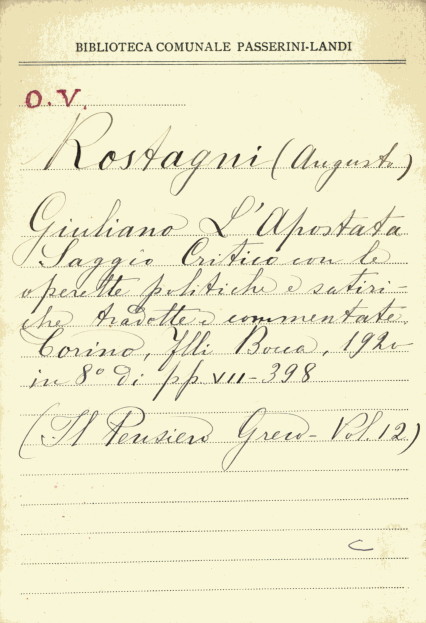 BIBLIOTECA COMUNALE PASSERINI-LANDI
O.V.
Rostagni (Augusto)
Giuliano L'Apostata
Saggio Critico con le
operette politiche e satiri-
che tradotte e commentate.
Torino, Flli Bocca, 1920
in 8° di pp VII-398
(Il Pensiero Greco - Vol. 12)